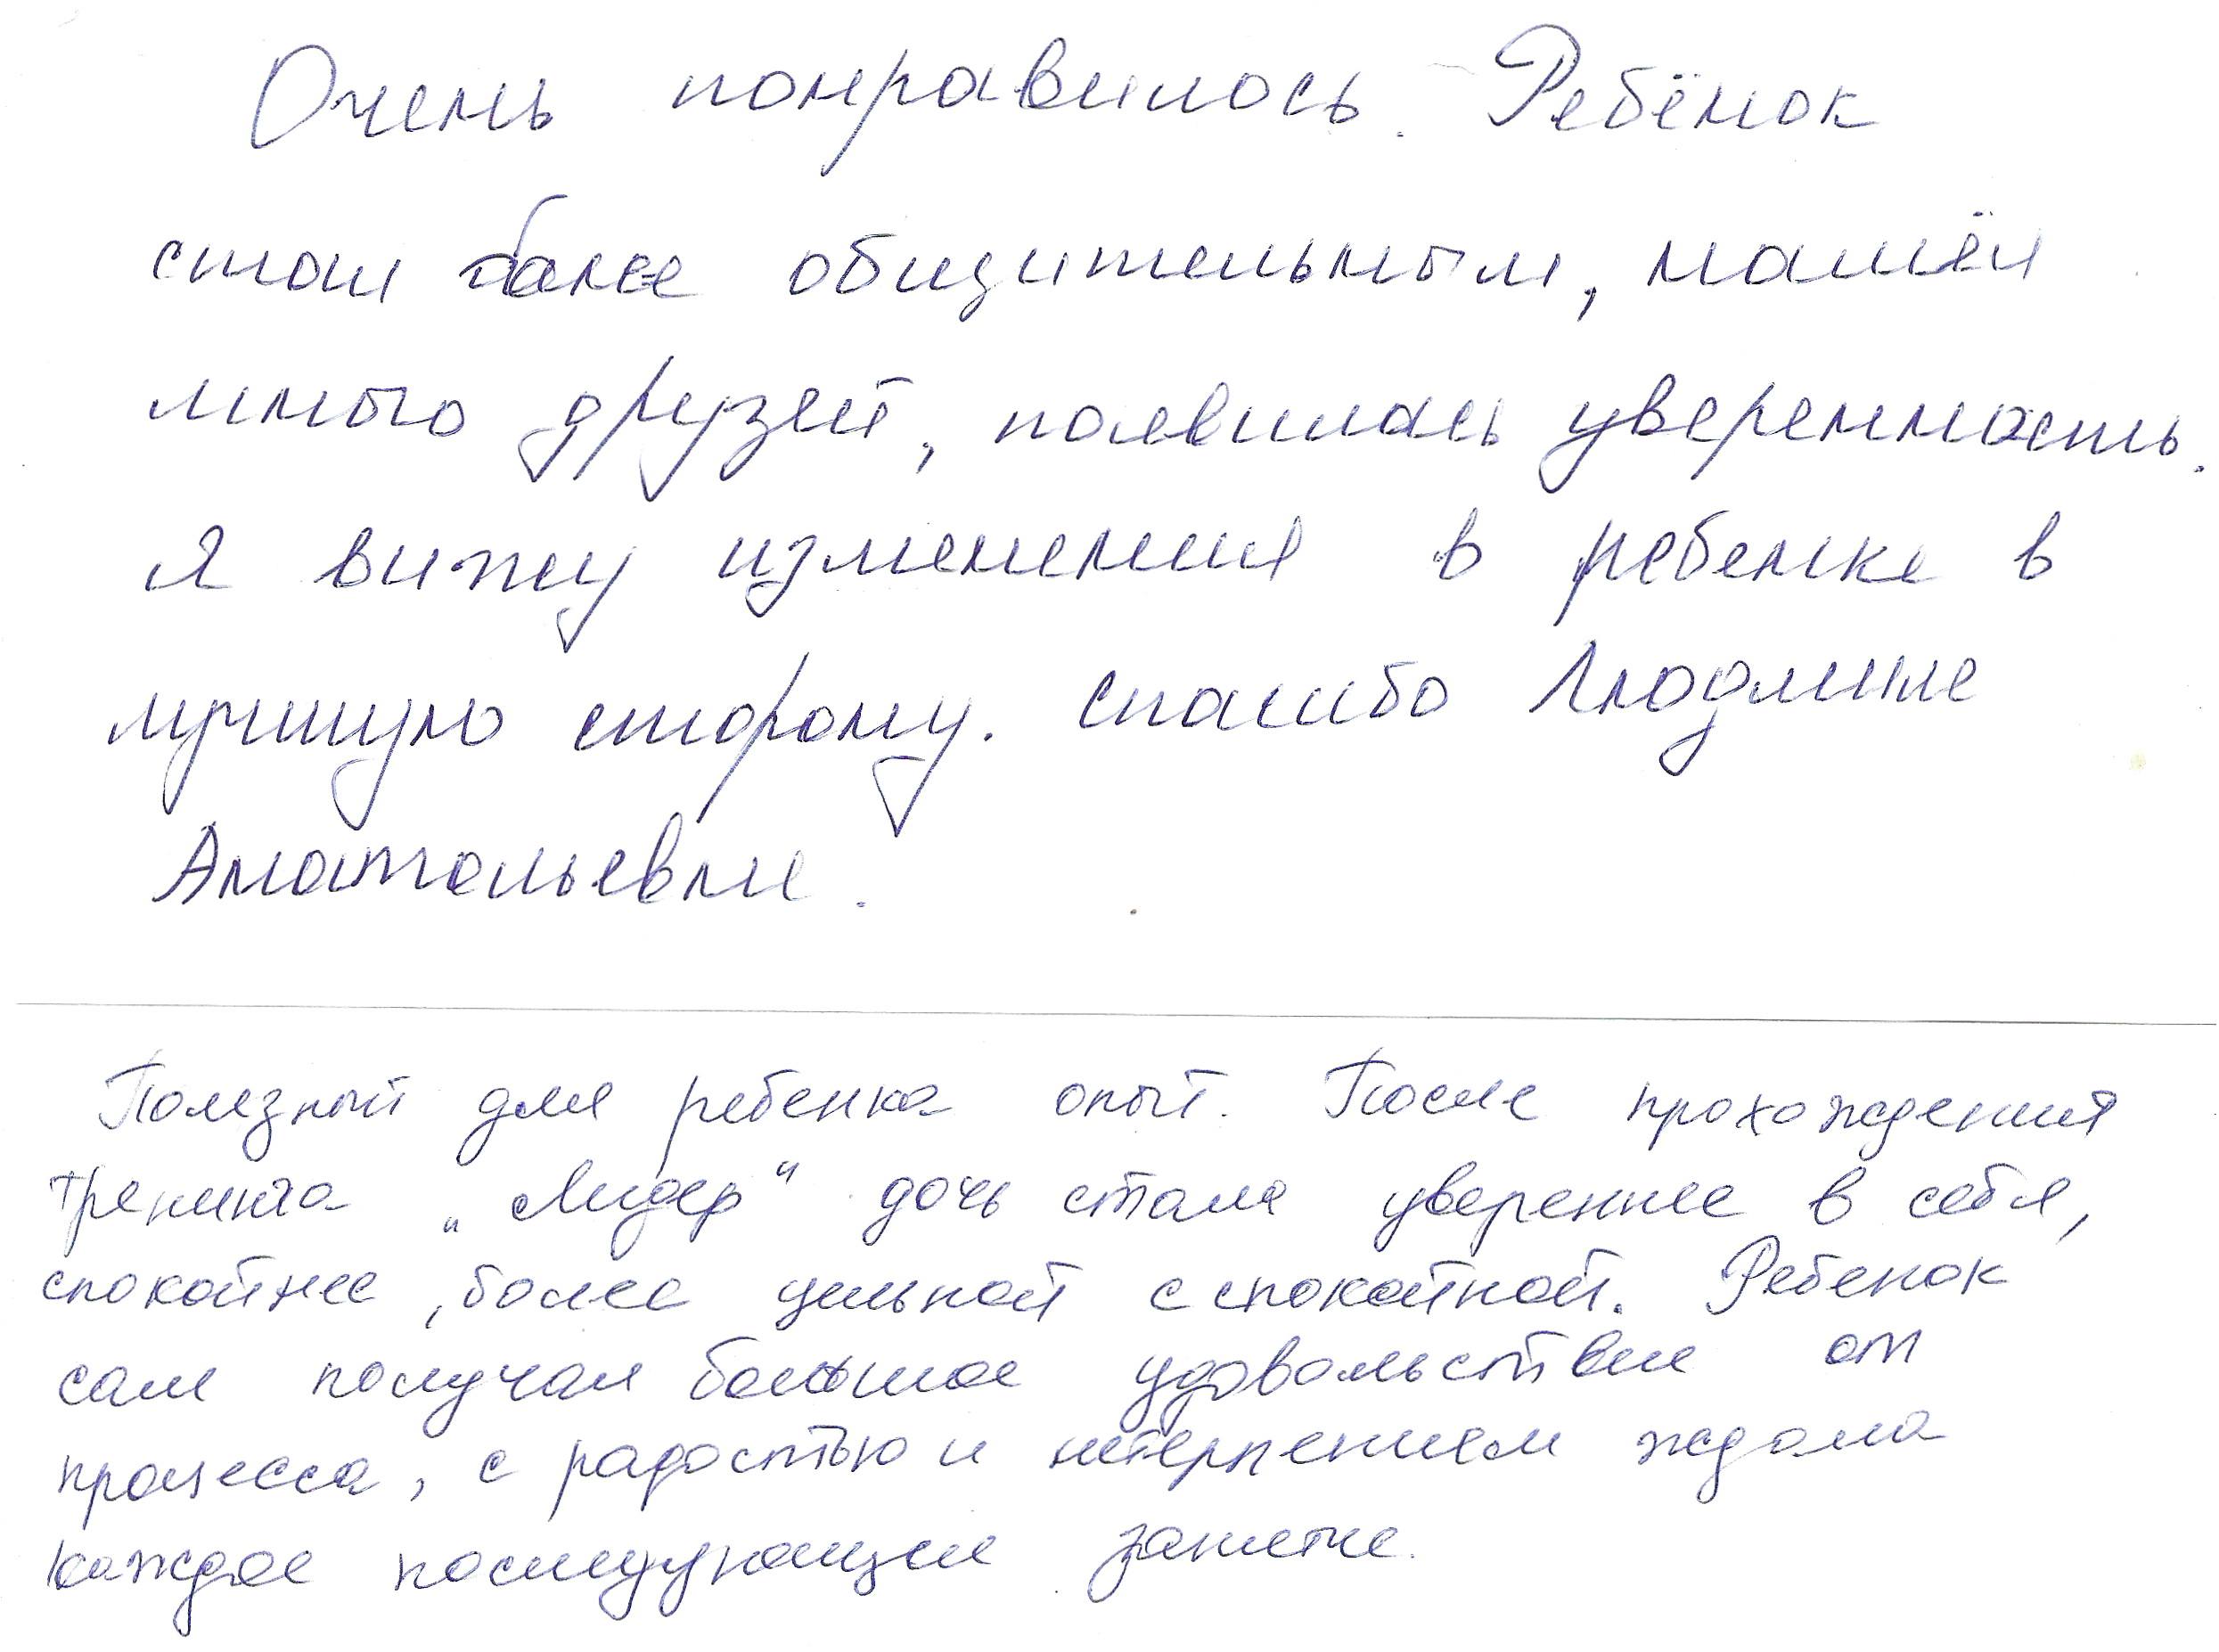 Очень понравилось. Ребёнок
стал более общительным, нашёл
много друзей, появилась уверенность.
Я вижу изменения в ребенке в
лучшую сторону. спасибо Людмиле
Анатольевне.
Полезный для ребенка опыт. После прохождения
тренинга „Лидер“ дочь стала увереннее в себя,
спокойнее, более цельной с спокойной. Ребенок
сам получал большое удовольствие от
процесса, с радостью и нетерпением ждала
каждое последующее занятие.